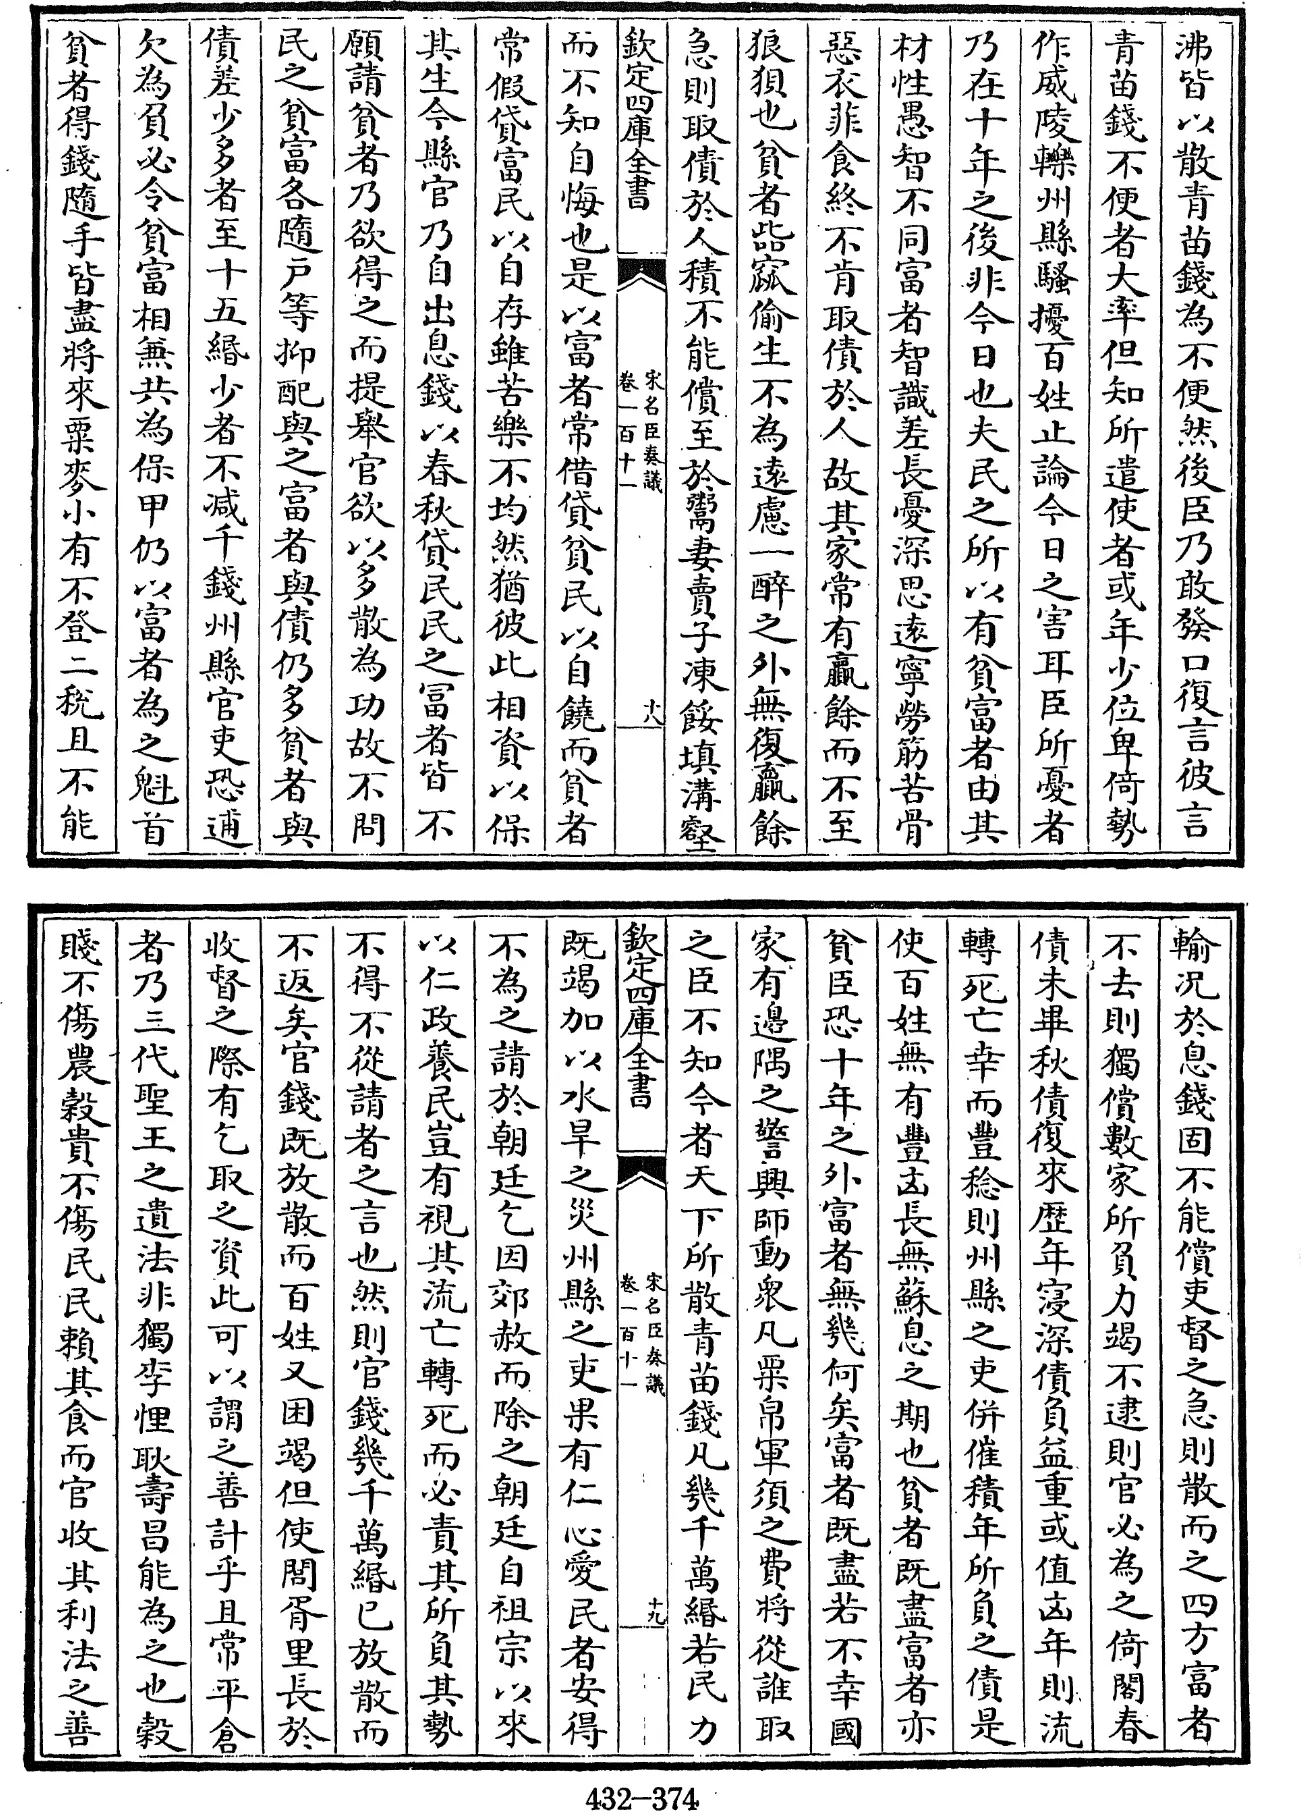 沸皆以散青苗錢為不便然後臣乃敢發口復言彼言
青苗錢不便者大率但知所遣使者或年少位卑倚勢
作威陵轢州縣騷擾百姓止論今日之害耳臣所憂者
乃在十年之後非今日也夫民之所以有貧富者由其
材性愚智不同富者智識差長憂深思逺寧勞筋苦骨
惡衣菲食終不肯取債於人故其家常有贏餘而不至
狼狽也貧者啙窳偷生不為逺慮一醉之外無復贏餘
急則取債於人積不能償至於鬻妻賣子凍餒填溝壑
欽定四庫全書
宋名臣奏議
卷一百十一
十八
而不知自悔也是以富者常借貸貧民以自饒而貧者
常假貸富民以自存雖苦樂不均然猶彼此相資以保
其生今縣官乃自出息錢以春秋貸民民之富者皆不
願請貧者乃欲得之而提舉官欲以多散為功故不問
民之貧富各隨户等抑配與之富者與債仍多貧者與
債差少多者至十五緡少者不减千錢州縣官吏恐逋
欠為負必令貧富相兼共為保甲仍以富者為之魁首
貧者得錢隨手皆盡將來粟麥小有不登二税且不能
輸況於息錢固不能償吏督之急則散而之四方富者
不去則獨償數家所負力竭不逮則官必為之倚閣春
債未畢秋債復來歴年寖深債負益重或值凶年則流
轉死亡幸而豐稔則州縣之吏併催積年所負之債是
使百姓無有豐凶長無蘇息之期也貧者既盡富者亦
貧臣恐十年之外富者無幾何矣富者既盡若不幸國
家有邊隅之警興師動衆凡粟帛軍須之費將從誰取
之臣不知今者天下所散青苗錢凡幾千萬緡若民力
欽定四庫全書
宋名臣奏議
卷一百十一
十九
既竭加以水旱之災州縣之吏果有仁心愛民者安得
不為之請於朝廷乞因郊赦而除之朝廷自祖宗以來
以仁政養民豈有視其流亡轉死而必責其所負其勢
不得不從請者之言也然則官錢幾千萬緡已放散而
不返矣官錢既放散而百姓又困竭但使閭胥里長於
收督之際有乞取之資此可以謂之善計乎且常平倉
者乃三代聖王之遺法非獨李悝耿壽昌能為之也穀
賤不傷農穀貴不傷民民賴其食而官收其利法之善
432-374